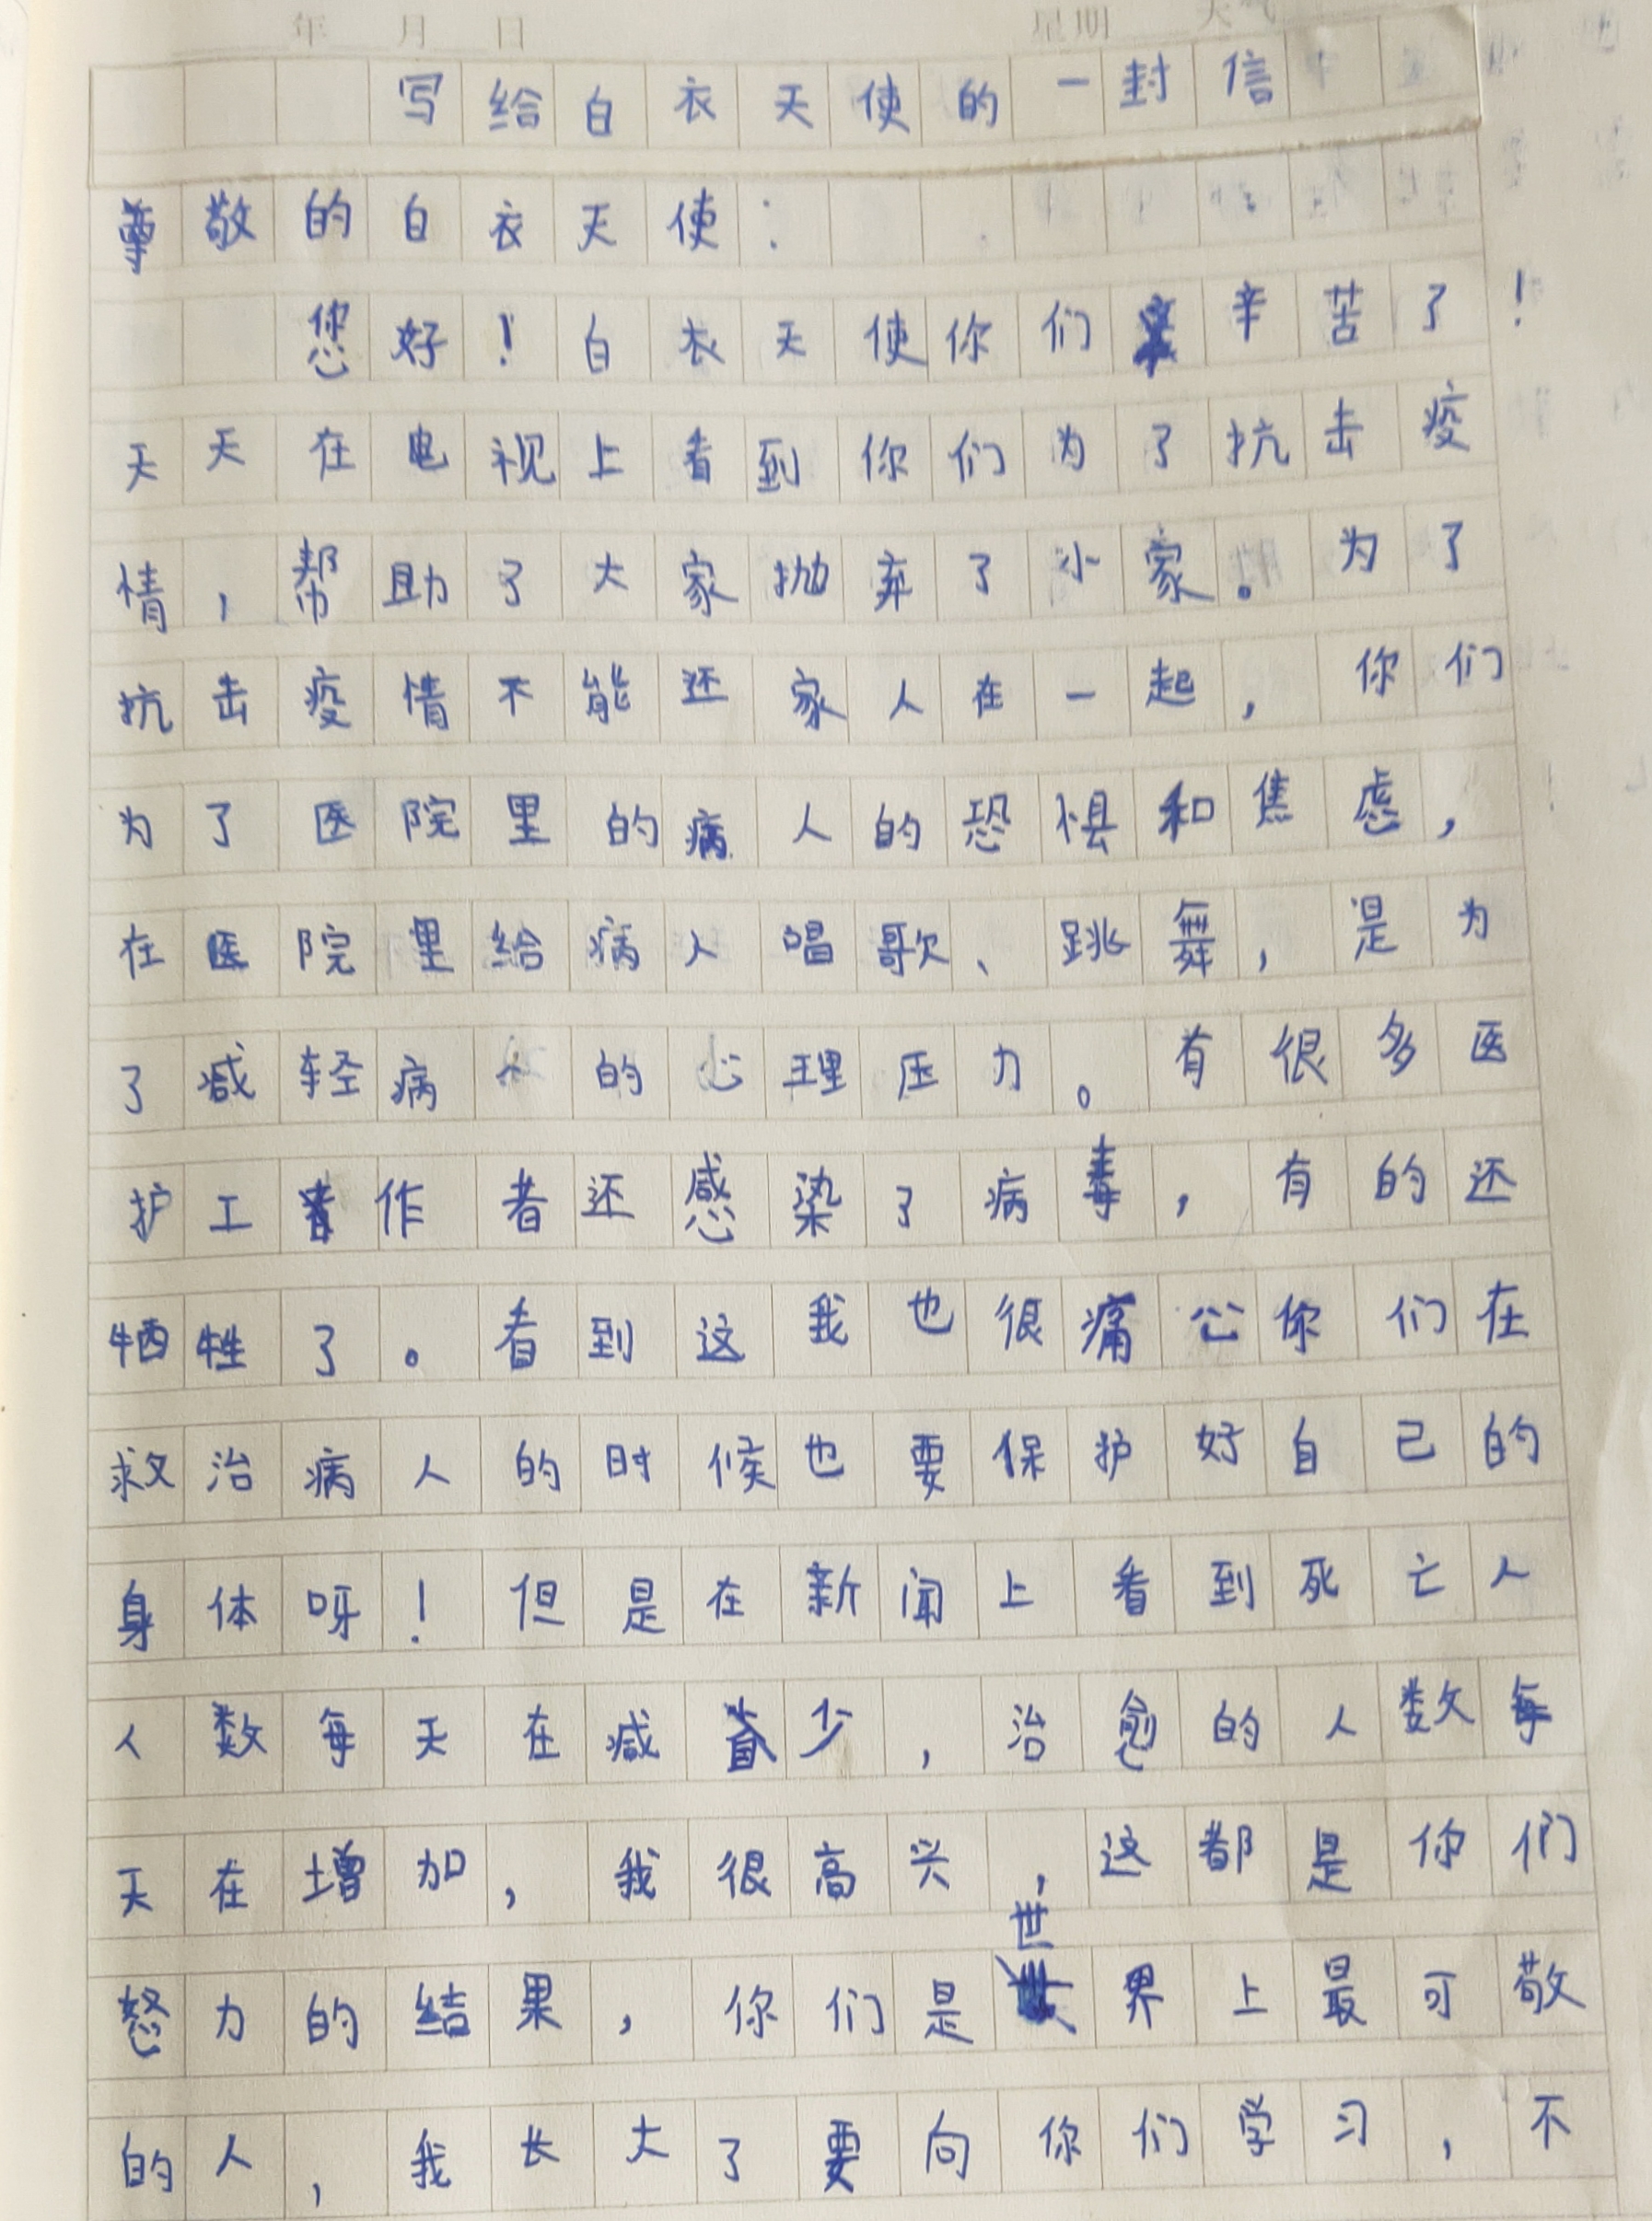 年 月 日 星期 天气
写给白衣天使的一封信
尊敬的白衣天使：
您好！白衣天使你们辛苦了！
天天在电视上看到你们为了抗击疫
情，帮助了大家抛弃了小家。为了
抗击疫情不能还家人在一起，你们
为了医院里的病人的恐惧和焦虑，
在医院里给病人唱歌、跳舞，是为
了减轻病人的心理压力。有很多医
护工作者还感染了病毒，有的还
牺牲了。看到这我也很痛心你们在
救治病人的时候也要保护好自己的
身体呀！但是在新闻上看到死亡人
人数每天在减少，治愈的人数每
天在增加，我很高兴，这都是你们
怒力的结果，你们是世界上最可敬
的人，我长大了要向你们学习，不